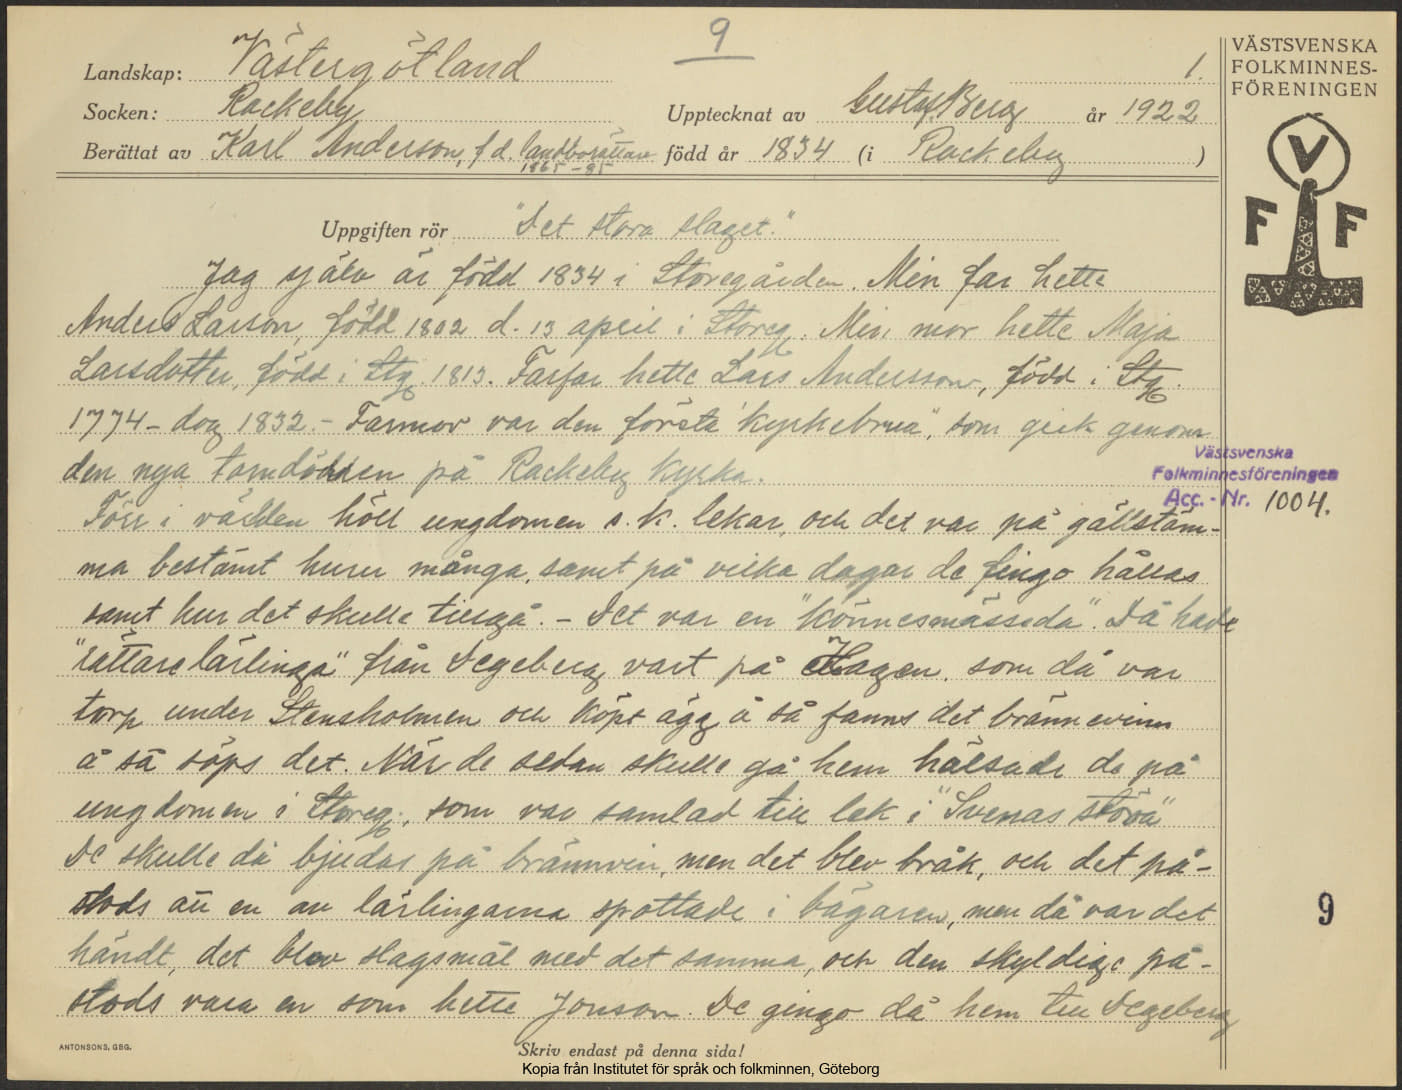 9
1.
Landskap: Västergötland
Socken: Rackeby Upptecknat av Gustaf Berg år 1922
Berättat av Karl Anderson, f.d. landtbrukare född år 1834 (i Rackeby )
1865-85
Uppgiften rör "Det stora slaget."
Jag själv är född 1834 i Storegården. Min far hette
Anders Larson, född 1802 d. 13 april i Storeg. Min mor hette Maja
Larsdotter, född i Stg 1813. Farfar hette Lars Andersson, född i Stg.
1774 - dog 1832. - Farmor var den första "kyrkebrua", som gick genom
den nya torndörren på Rackeby kyrka.
Förr i världen höll ungdomen s.k. lekar, och det var på gällstäm-
ma bestämt huru många, samt på vilka dagar de fingo hållas
samt hur det skulle tillgå. - Det var en "könnesmässeda". Då hade
"rättarelärlinga" från Degeberg vart på Hagen, som då var
torp under Stensholmen och köpt ägg å så fanns det brännevinn
å så söps det. När de sedan skulle gå hem hälsade de på
ungdomen i Storeg., som var samlad till lek i "Svenas störa"
De skulle då bjudas på brännvin, men det blev bråk, och det på-
stods att en av lärlingarna spottade i bägaren, men då var det
händt, det blev slagsmål med det samma, och den skyldige på-
stods vara en som hette Jonson. De gingo då hem till Degeberg
VÄSTSVENSKA
FOLKMINNES-
FÖRENINGEN
V
F F
Västsvenska
Folkminnesföreningen
Acc.-Nr. 1004.
9
ANTONSONS, GBG.
Skriv endast på denna sida!
Kopia från Institutet för språk och folkminnen, Göteborg